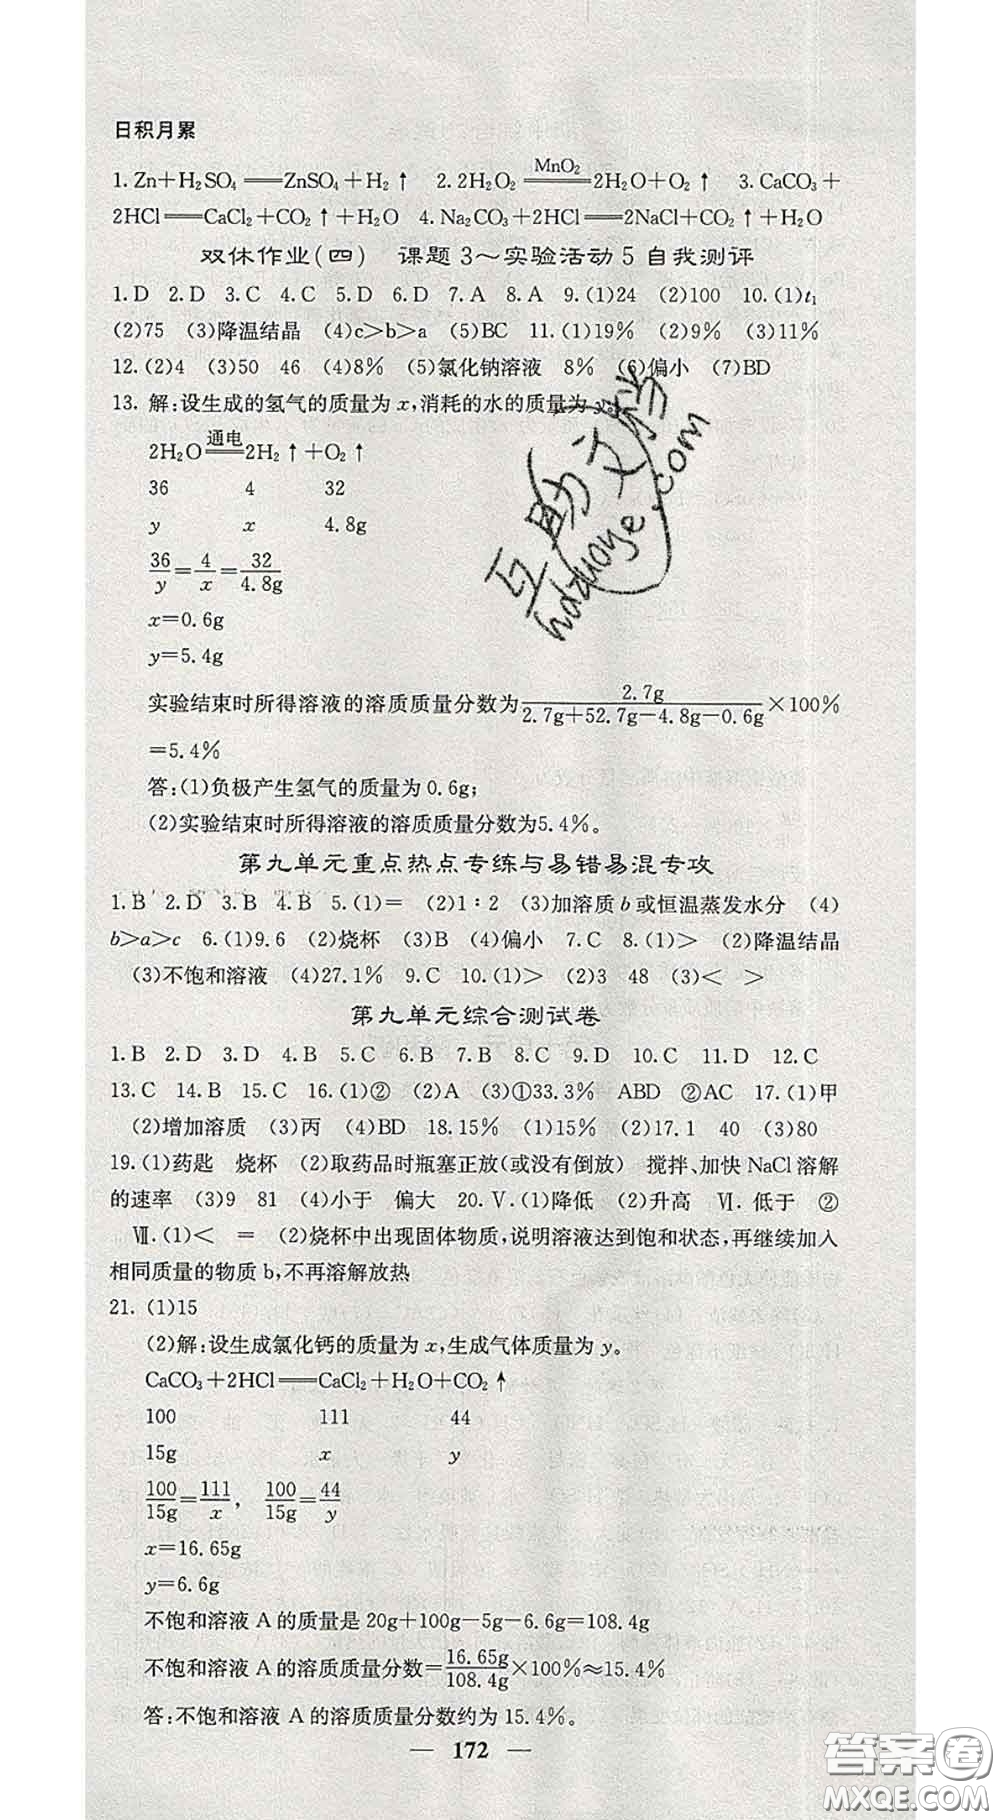 日积月累
1.Zn+H₂SO₄══ZnSO₄+H₂↑ 2.2H₂O₂ ══MnO₂══ 2H₂O+O₂↑ 3.CaCO₃+
2HCl══CaCl₂+CO₂↑+H₂O 4.Na₂CO₃+2HCl══2NaCl+CO₂↑+H₂O
双休作业(四) 课题3～实验活动5自我测评
1.D 2.D 3.C 4.C 5.D 6.D 7.A 8.A 9.(1)24 (2)100 10.(1)t₁
(2)75 (3)降温结晶 (4)c>b>a (5)BC 11.(1)19% (2)9% (3)11%
12.(2)4 (3)50 46 (4)8% (5)氯化钠溶液 8% (6)偏小 (7)BD
13. 解:设生成的氢气的质量为x,消耗的水的质量为y。
2H₂O ══通电══ 2H₂↑+O₂↑
36 4 32
y x 4.8g
36/y=4/x=32/4.8g
x=0.6g
y=5.4g
实验结束时所得溶液的溶质质量分数为2.7g/(2.7g+52.7g-4.8g-0.6g)×100%
=5.4%
答:(1)负极产生氢气的质量为0.6g;
(2)实验结束时所得溶液的溶质质量分数为5.4%。
第九单元重点热点专练与易错易混专攻
1.B 2.D 3.B 4.B 5.(1)= (2)1∶2 (3)加溶质b或恒温蒸发水分 (4)
b>a>c 6.(1)9.6 (2)烧杯 (3)B (4)偏小 7.C 8.(1)> (2)降温结晶
(3)不饱和溶液 (4)27.1% 9.C 10.(1)> (2)3 48 (3)< >
第九单元综合测试卷
1.B 2.D 3.D 4.B 5.C 6.B 7.B 8.C 9.D 10.C 11.D 12.C
13.C 14.B 15.C 16.(1)② (2)A (3)①33.3% ABD ②AC 17.(1)甲
(2)增加溶质 (3)丙 (4)BD 18.15% (1)15% (2)17.1 40 (3)80
19.(1)药匙 烧杯 (2)取药品时瓶塞正放(或没有倒放) 搅拌、加快NaCl溶解
的速率 (3)9 81 (4)小于 偏大 20.Ⅴ.(1)降低 (2)升高 Ⅵ.低于 ②
Ⅶ.(1)< = (2)烧杯中出现固体物质,说明溶液达到饱和状态,再继续加入
相同质量的物质b,不再溶解放热
21. (1)15
(2)解:设生成氯化钙的质量为x,生成气体质量为y。
CaCO₃+2HCl══CaCl₂+H₂O+CO₂↑
100 111 44
15g x y
100/15g=111/x, 100/15g=44/y
x=16.65g
y=6.6g
不饱和溶液A的质量是20g+100g-5g-6.6g=108.4g
不饱和溶液A的溶质质量分数=16.65g/108.4g×100%≈15.4%
答:不饱和溶液A的溶质质量分数约为15.4%。
— 172 —
互助文档
hdzuoye.com
答案圈
MXQE.COM